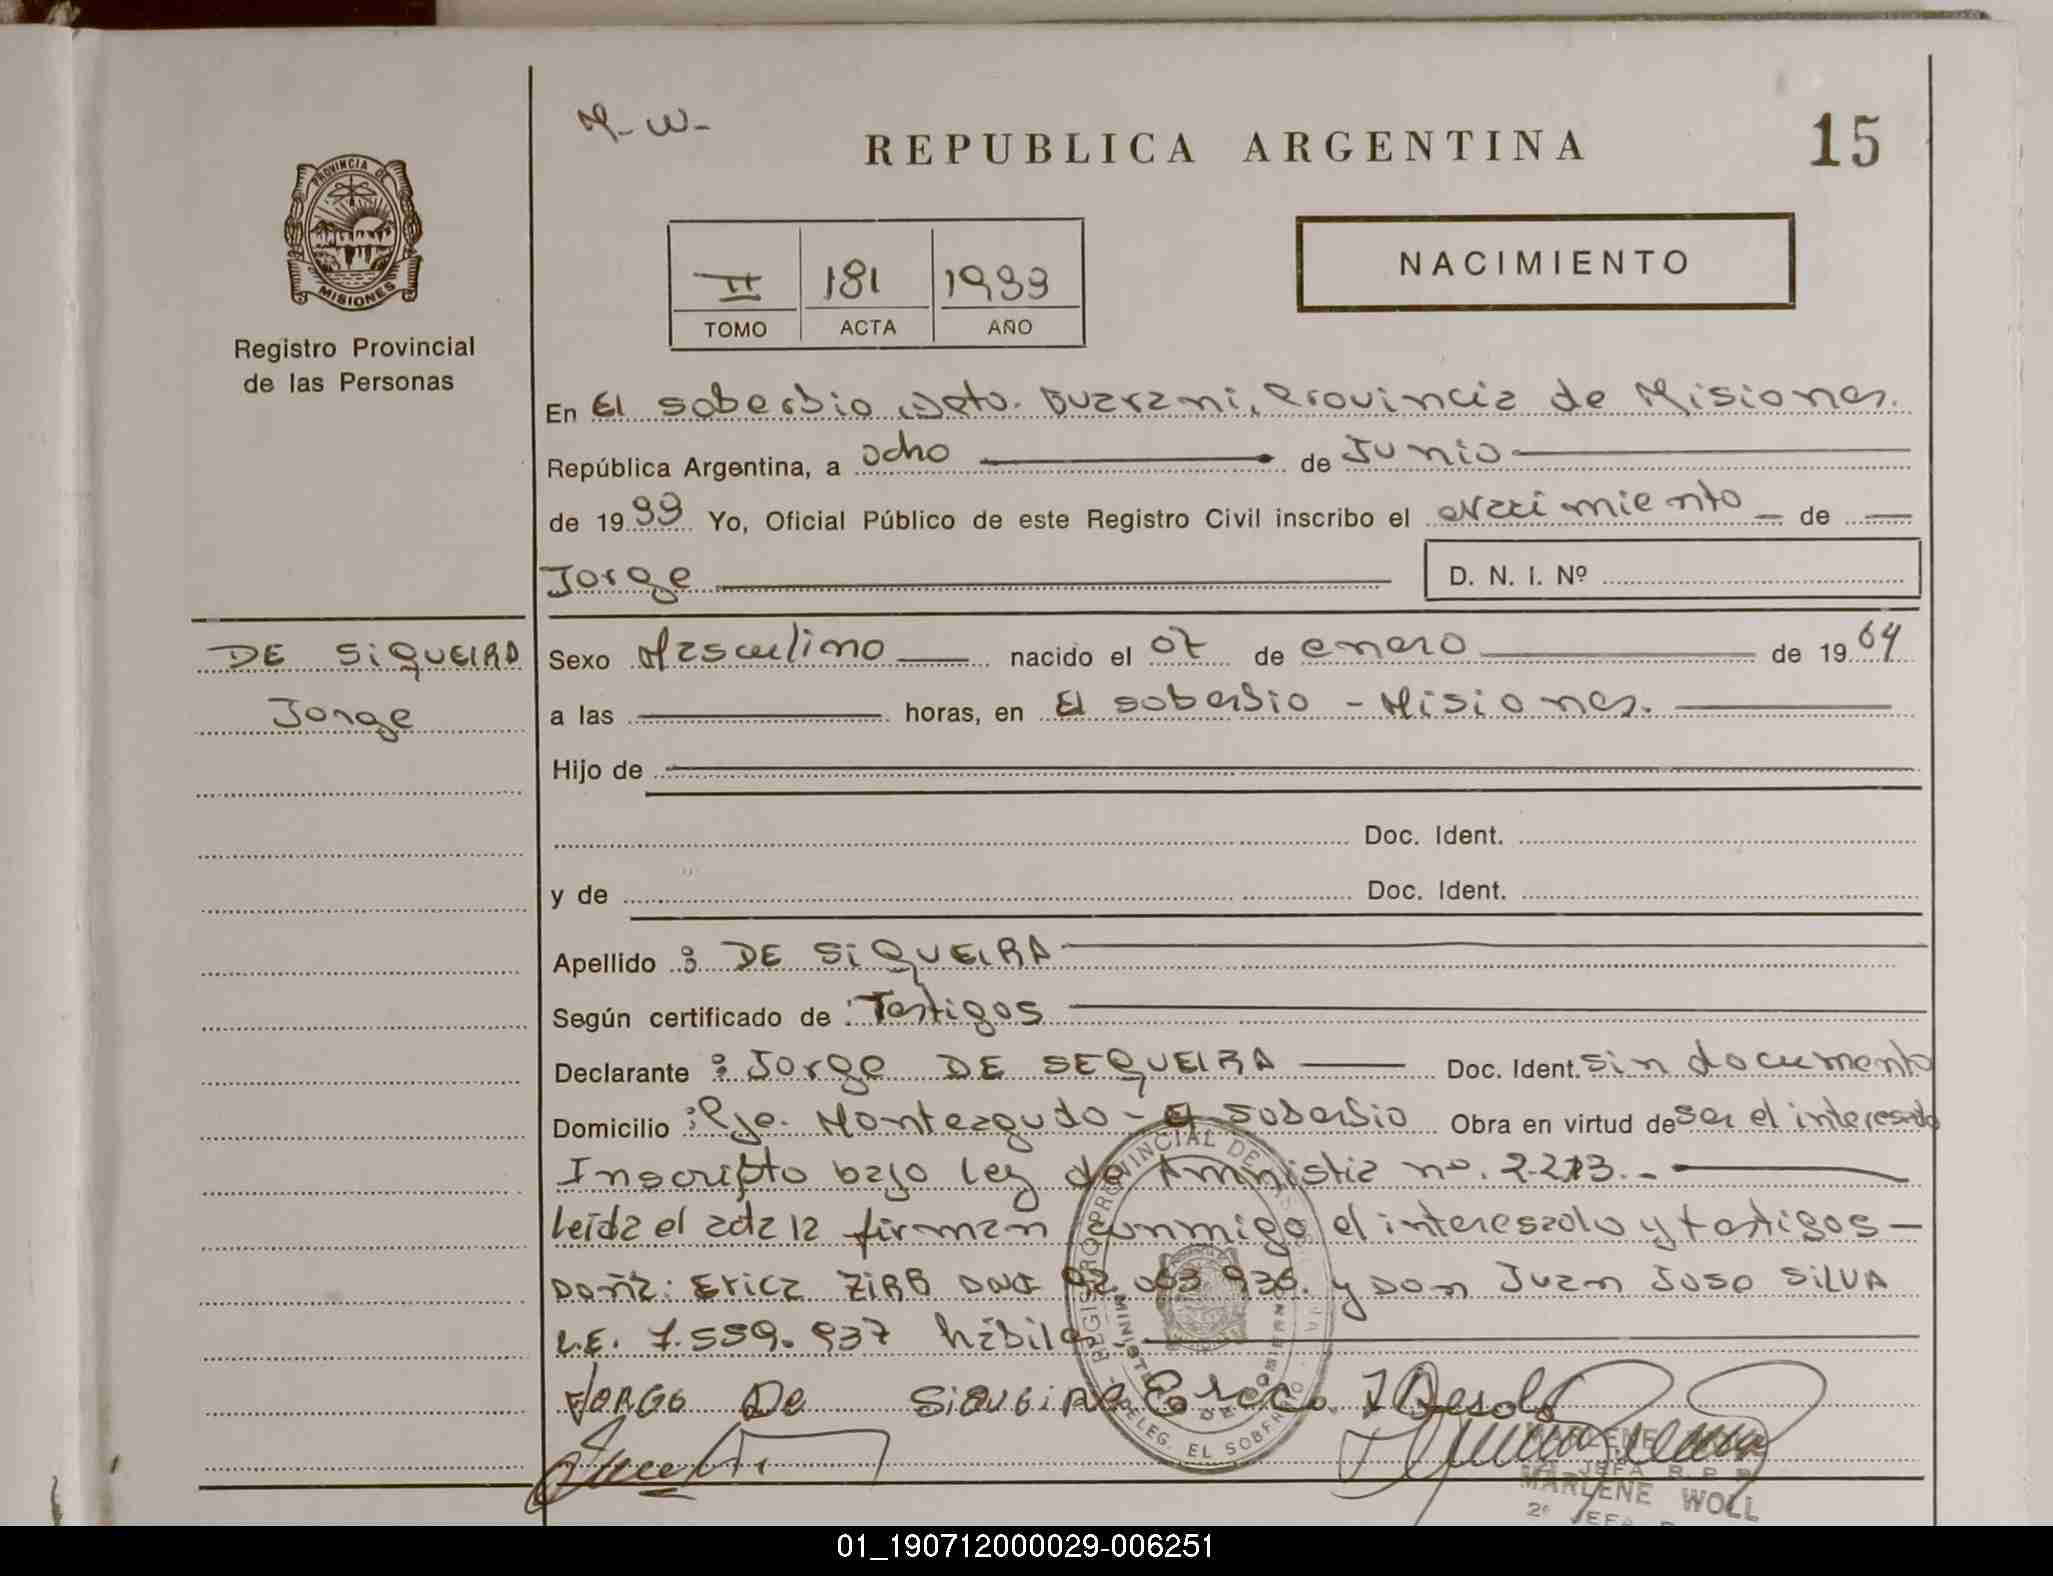 M-W-
REPUBLICA ARGENTINA
15
PROVINCIA DE
MISIONES
Registro Provincial
de las Personas
II 181 1999
TOMO ACTA AÑO
NACIMIENTO
En El Soberbio, Dpto. Guarani, Provincia de Misiones.
República Argentina, a ocho de Junio
de 1999 Yo, Oficial Público de este Registro Civil inscribo el Nacimiento de
Jorge
D. N. I. Nº
DE SiQUEIRA
Jorge
Sexo Masculino nacido el 07 de enero de 1964
a las horas, en El Soberbio - Misiones.
Hijo de
Doc. Ident.
y de Doc. Ident.
Apellido : DE SiQUEIRA
Según certificado de : Testigos
Declarante : Jorge DE SEQUEIRA Doc. Ident. sin documento
Domicilio : Pje. Monteagudo - El Soberbio Obra en virtud de ser el interesado
Inscripto bajo Ley de Amnistia no. 2.213.-
leída el acta la firman conmigo el interesado y testigos -
Doña: Erica ZIRB DNI 92.063.936. y Don Juan Jose SILVA
L.E. 7.559.937 hábiles
JORGE De SiQUEiRA Erica
REGISTRO PROVINCIAL DE LAS PERSONAS
MINISTERIO DE GOBIERNO
DELEG. EL SOBERBIO
MARLENE WOLL
JEFA R. P. P.
MARLENE WOLL
2º JEFA
01_190712000029-006251